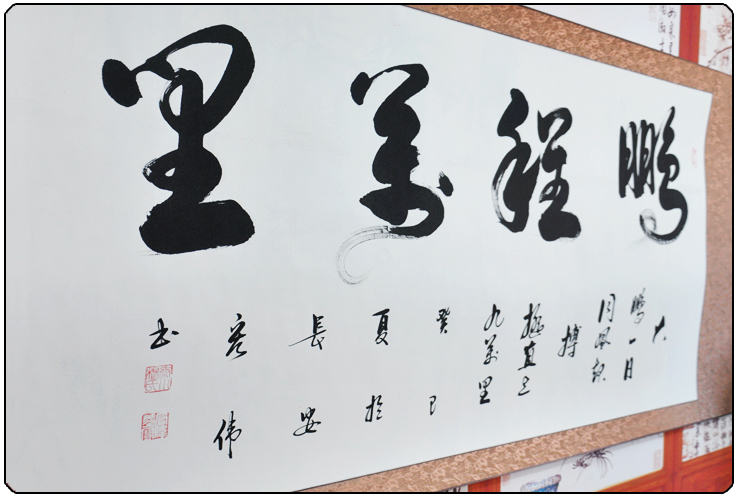 鵬程萬里
大
鵬一日
同風起
搏
搖直上
九萬里
癸巳
夏於
長安
伟
书